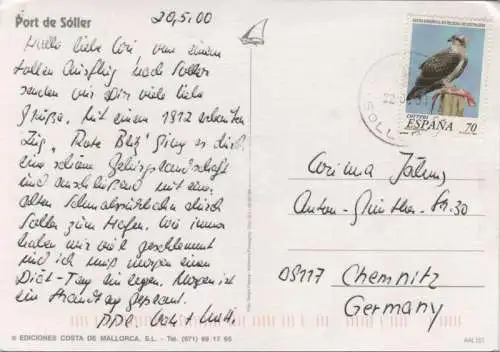 Port de Sóller
20,5.00
Hallo liebe Cori von einem
tollen Ausflug nach Soller
senden wir Dir viele liebe
Grüße. Mit einem 1912 erbauten
Zug, "Rote Blitz" ging es durch
eine schöne Gebirgslandschaft
und anschließend mit einer
alten Schmalspurbahn durch
Soller zum Hafen. Wie immer
haben wir viel geschlemmt
und ich muß morgen einen
Diät-Tag einlegen. Morgen ist
ein Strandtag geplant.
Vati + Mutti
® EDICIONES COSTA DE MALLORCA, S.L. - Tel. (971) 69 17 65
CORREOS
ESPAÑA 70
SOLLER
Corinna
Anton-Günther-Str. 30
09117 Chemnitz
Germany